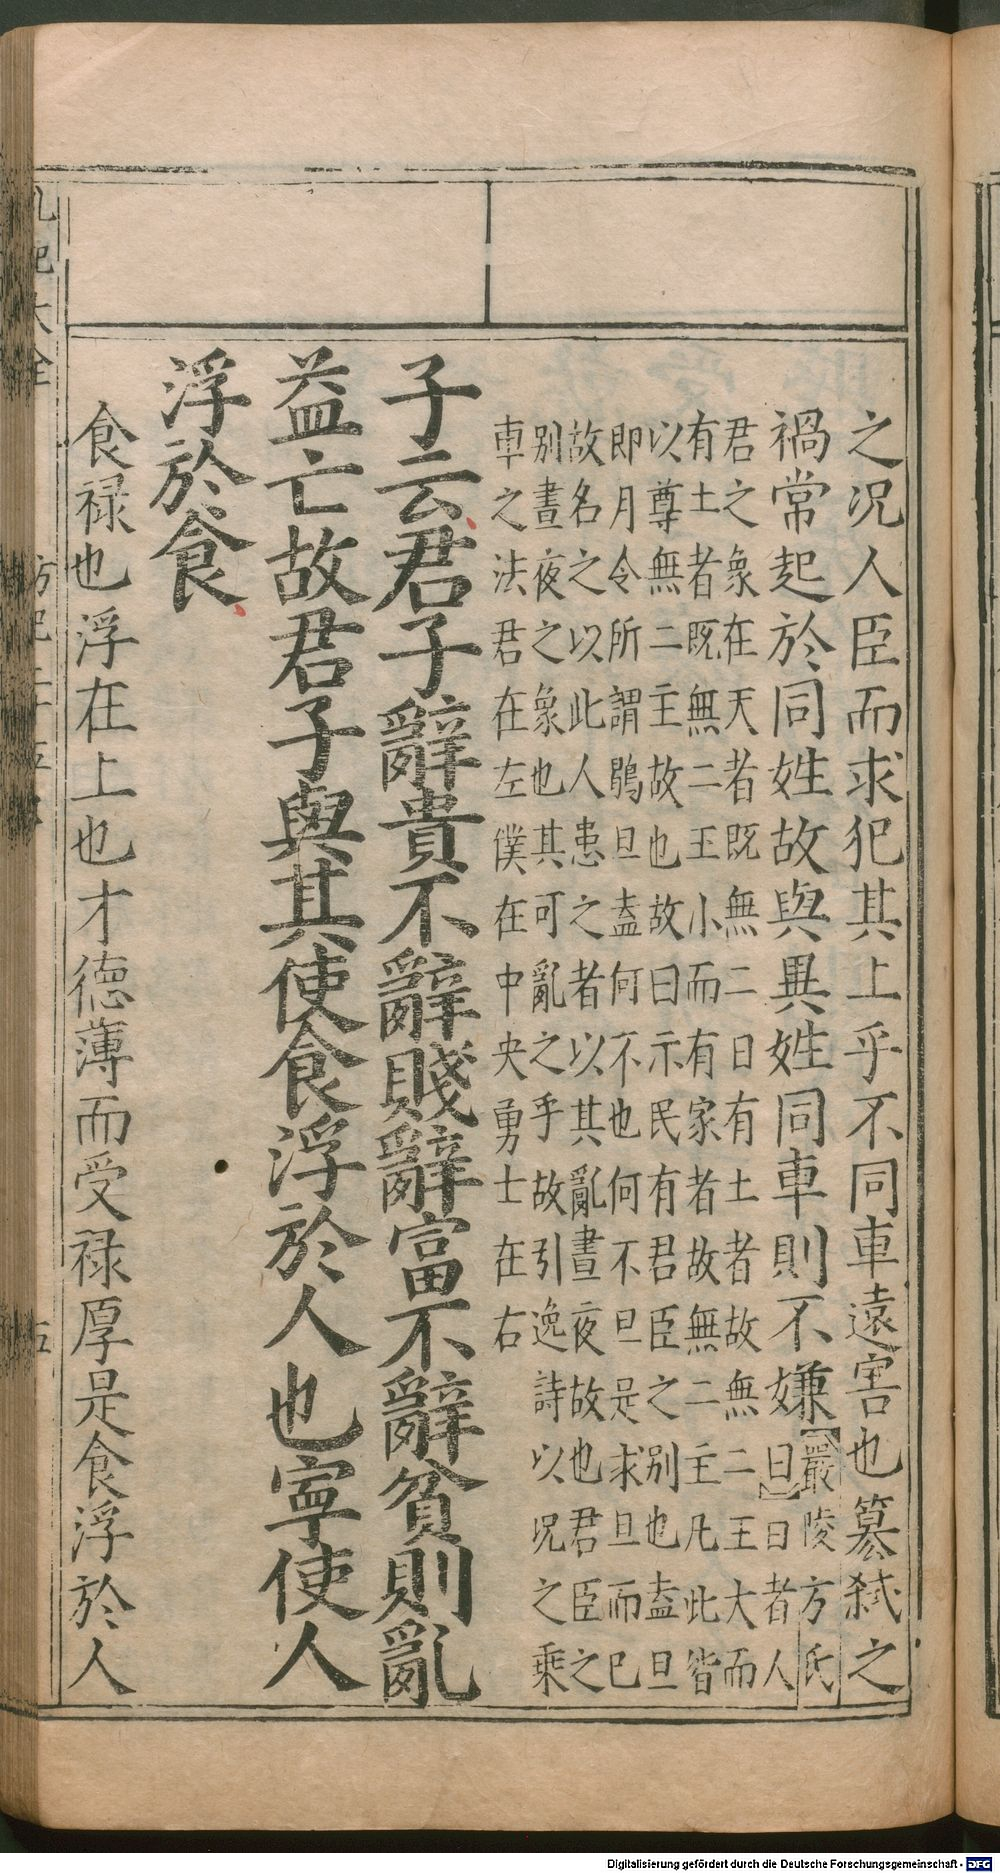 之况人臣而求犯其上乎不同車遠害也篡弑之
禍常起於同姓故與異姓同車則不嫌
嚴陵方氏
曰日者人
君之象在天者既無二日有土者故無二王大而
有土者既無二王小而有家者故無二主凡此皆
以尊無二主故也故曰示民有君臣之別也盍旦
即月令所謂鶡旦盍何不也何不旦是求旦而已
故名之以此人患之者以其亂晝夜故也君臣之
別晝夜之象也其可亂之乎故引逸詩以况之乘
車之法君在左僕在中央勇士在右
子云君子辭貴不辭賤辭富不辭貧則亂
益亡故君子與其使食浮於人也寧使人
浮於食
食禄也浮在上也才德薄而受禄厚是食浮於人
五
Digitalisierung gefördert durch die Deutsche Forschungsgemeinschaft - DFG